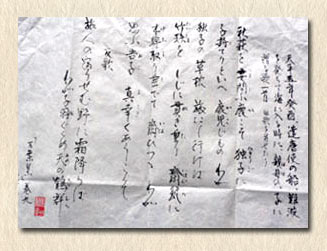 天平五年癸酉、遣唐使の船、難波
を発ちて海に入る時に、親母の子に
贈る歌一首
秋萩を 妻問ふ鹿こそ 独子に
子持てりといへ 鹿児じもの わが
独子の 草枕 旅にし行けば
竹珠を しじに貫き垂り 齋瓮に
木綿取り垂でて 齋ひつつ わが
思ふ吾子 真幸くありこそ
反歌
旅人の宿りせむ野に霜降らば
わが子羽ぐくめ天の鶴群
万葉集 巻九